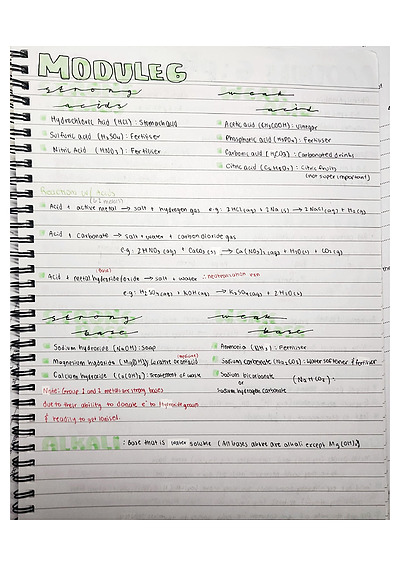 MODULE 6
strong acids
weak acid
Hydrochloric Acid (HCl) : Stomach acid
Sulfuric acid (H₂SO₄) : Fertiliser
Nitric Acid (HNO₃) : Fertiliser
Acetic acid (CH₃COOH) : Vinegar
Phosphoric acid (H₃PO₄) : Fertiliser
Carbonic acid (H₂CO₃) : Carbonated drinks
Citric acid (C₆H₈O₇) : Citric fruits
(not super important)
Reaction
Acid + active metal → salt + hydrogen gas e.g: 2HCl(aq) + 2Na(s) → 2NaCl(aq) + H₂(g)
Acid + Carbonate → salt + water + carbon dioxide gas
e.g: 2HNO₃(aq) + CaCO₃(s) → Ca(NO₃)₂(aq) + H₂O(l) + CO₂(g)
(base)
Acid + metal hydroxide/oxide → salt + water ∴ neutralisation rxn
e.g: H₂SO₄(aq) + KOH(aq) → K₂SO₄(aq) + 2H₂O(l)
strong base
weak base
Sodium hydroxide (NaOH) : Soap
Magnesium hydroxide (Mg(OH)₂) : Laxative or antacid
Calcium hydroxide (Ca(OH)₂) : Treatment of waste
Ammonia (NH₃) : Fertiliser
Sodium carbonate (Na₂CO₃) : Water softener & fertiliser
Sodium bicarbonate
or
Sodium hydrogen carbonate
(NaHCO₃) :
Note: Group 1 and 2 metals are strong bases
due to their ability to donate e⁻ to hydroxide group
& readily to get ionised.
ALKALI : Base that is water soluble (All bases above are alkali except Mg(OH)₂)